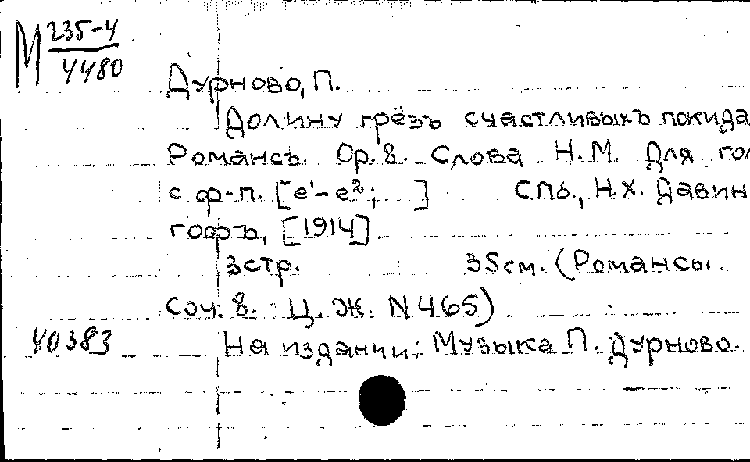 М 235-4
4480
Дурново, П.
Долину грёзъ счастливыхъ покида
Романсъ. Op. 8. Слова Н.М. Для гол
с ф-п. [e¹-e²; ] Спб., Н.Х. Давин
гофъ, [1914].
3стр. 35см. (Романсы.
Соч. 8. Ц. Ж. N 465)
40383 На издании: Музыка П. Дурново.